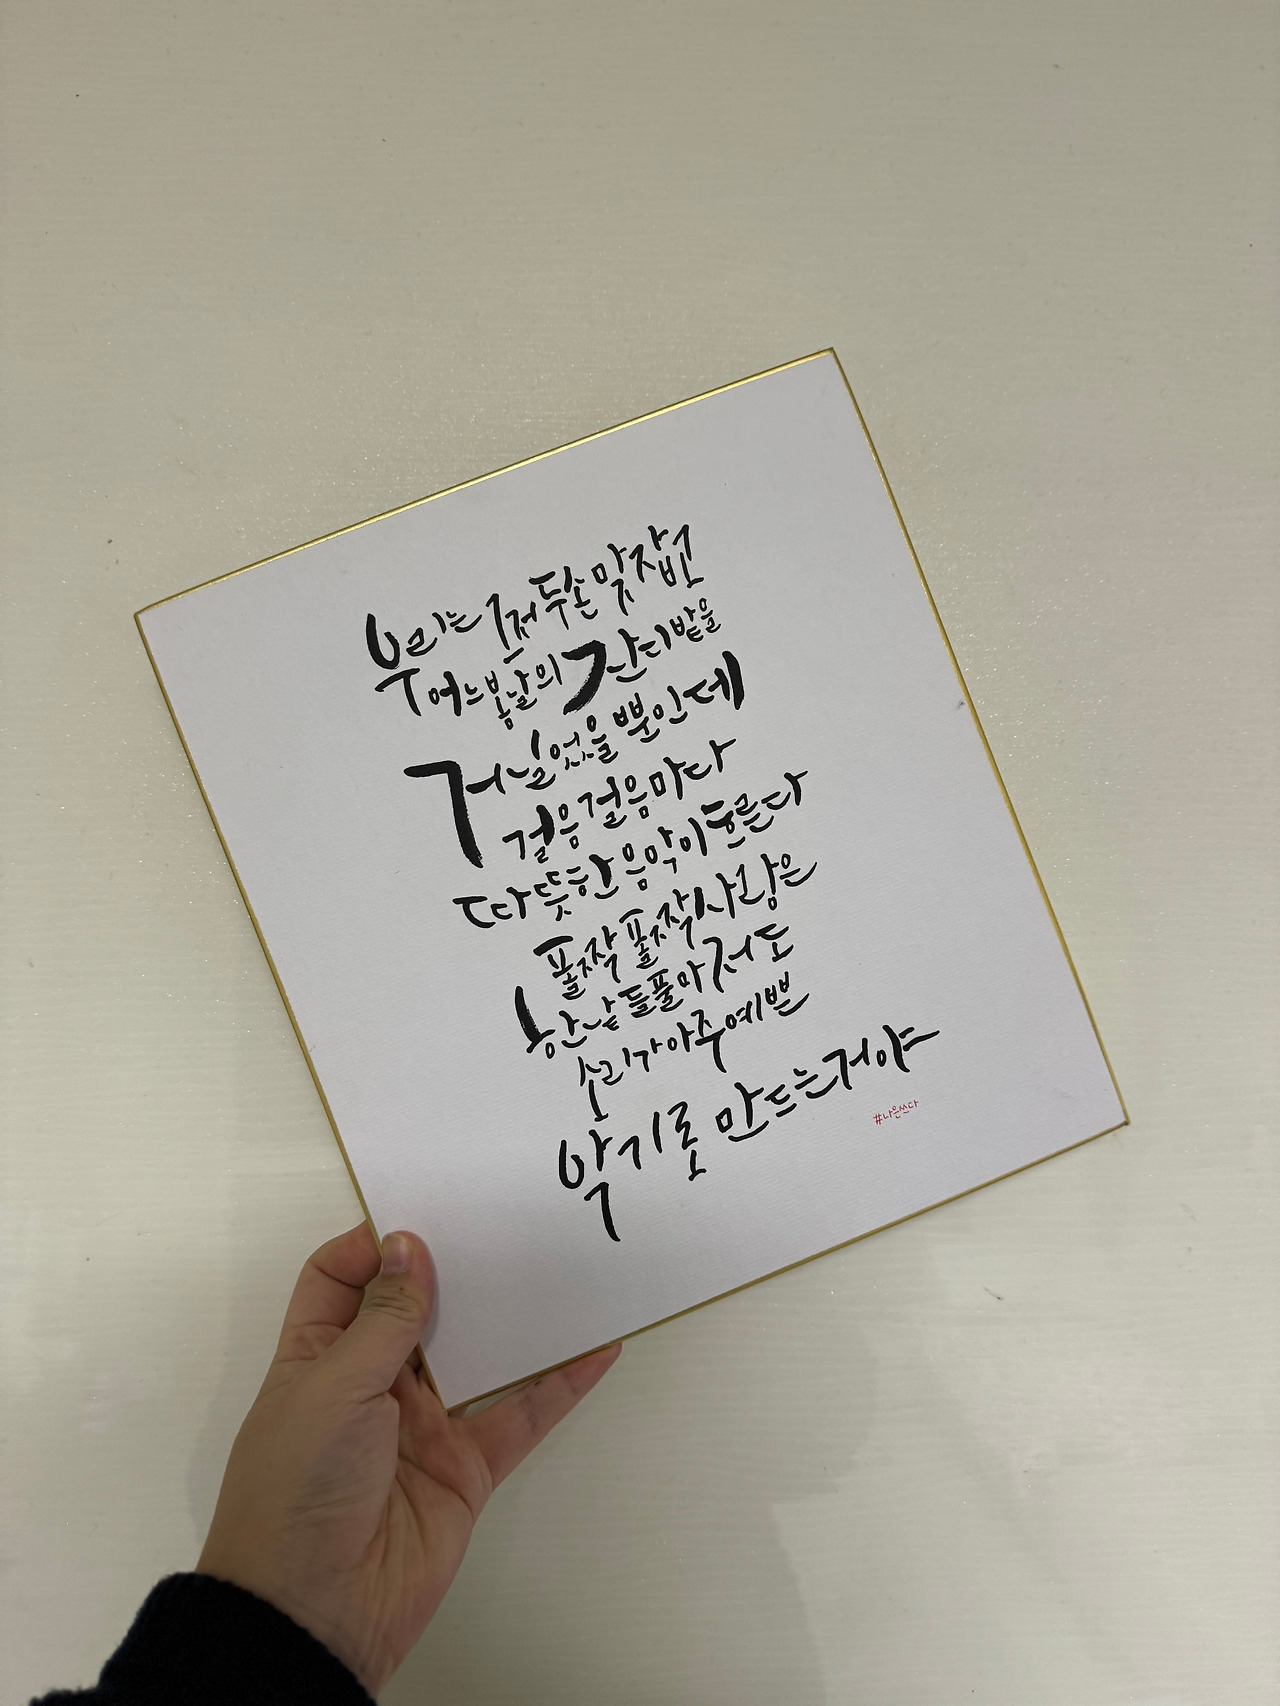 우리는 그저 두 손 맞잡고
어느 봄날의 잔디밭을
거닐었을 뿐인데
걸음걸음마다
따뜻한 음악이 흐른다
폴짝폴짝 사랑은
흔한 낱 들풀마저도
소리가 아주 예쁜
악기로 만드는 거야
#나은쓰다